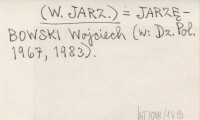 (W. JARZ.) = JARZĘ-
BOWSKI Wojciech (w: Dz. Pol.
1967, 1983).